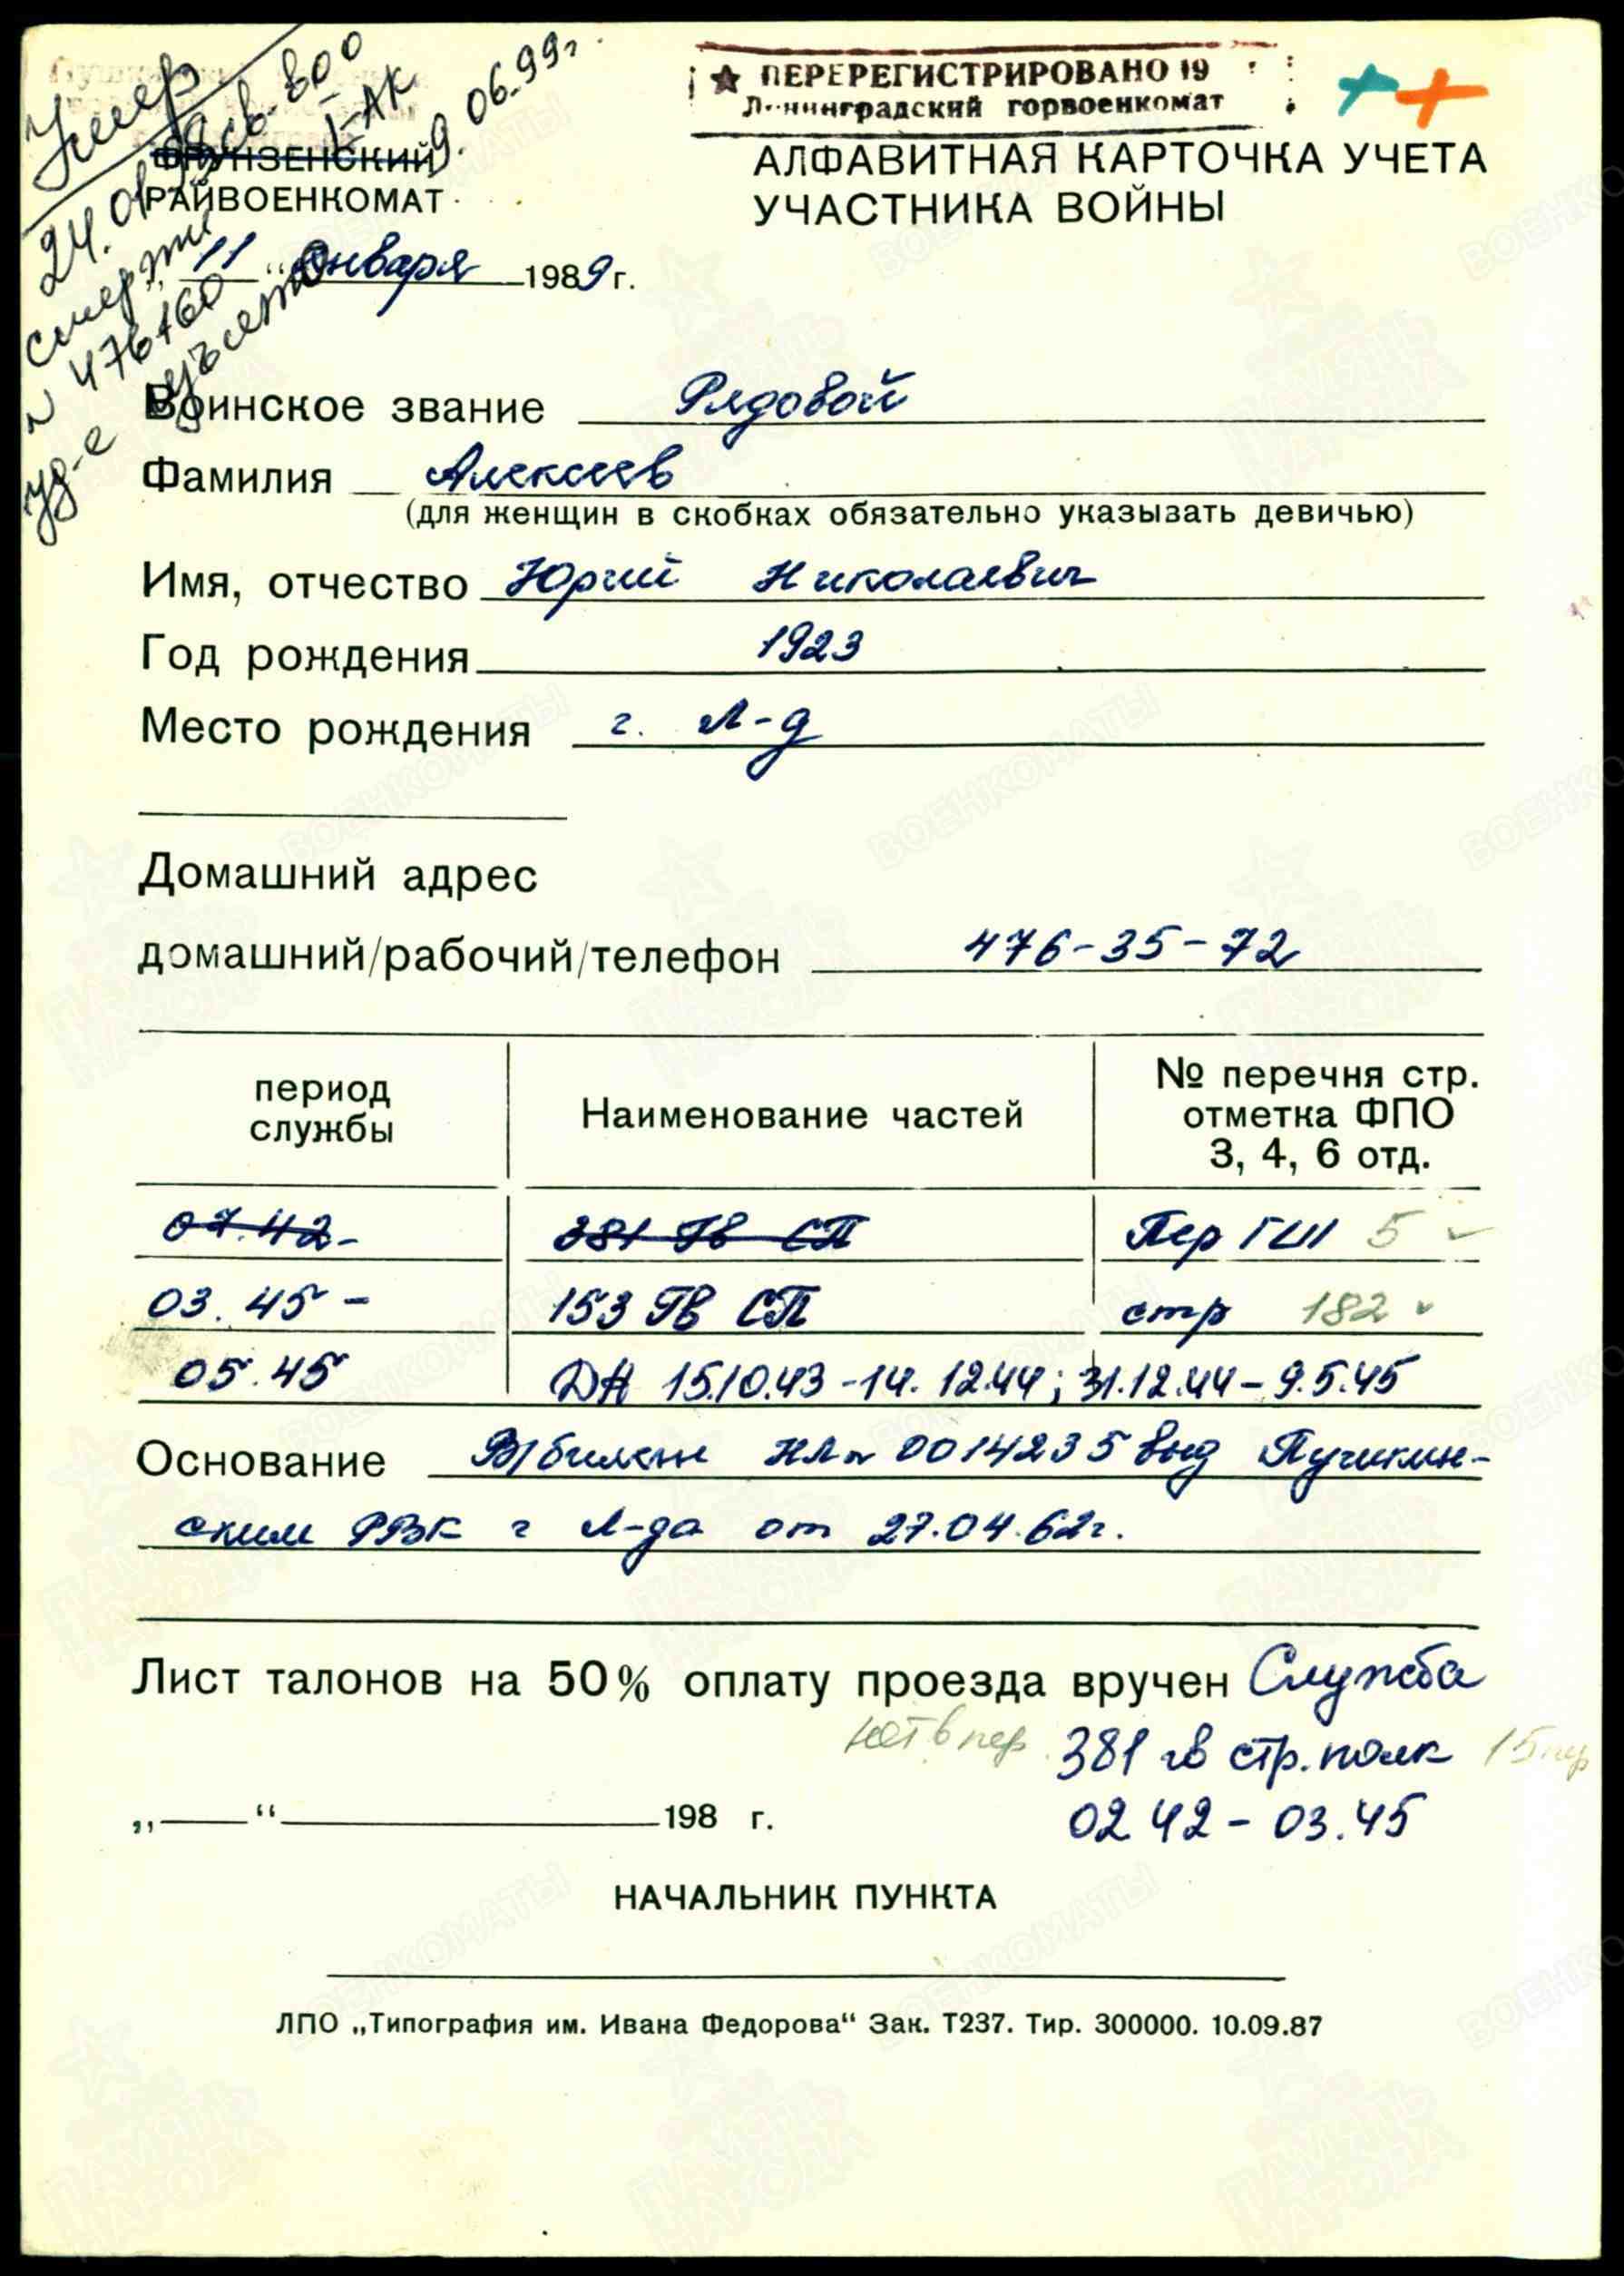 ПЕРЕРЕГИСТРИРОВАНО 19
Ленинградский горвоенкомат
Умер
24.01.99 св-во о
смерти
I-АК
N 476160
9.06.99г.
уд-е изъято
ФРУНЗЕНСКИЙ
РАЙВОЕНКОМАТ
„11“ января 1989 г.
АЛФАВИТНАЯ КАРТОЧКА УЧЕТА
УЧАСТНИКА ВОЙНЫ
Воинское звание Рядовой
Фамилия Алексеев
(для женщин в скобках обязательно указывать девичью)
Имя, отчество Юрий Николаевич
Год рождения 1923
Место рождения г. Л-д
Домашний адрес
домашний/рабочий/телефон 476-35-72
период
службы
Наименование частей
№ перечня стр.
отметка ФПО
3, 4, 6 отд.
07.42- 381 Гв СП Пер ГШ 5
03.45- 153 Гв СП стр 182
05.45 ДА 15.10.43-14.12.44; 31.12.44-9.5.45
Основание В/билет НЛ N 0014235 выд Пушкин-
ским РВК г Л-да от 27.04.62г.
Лист талонов на 50% оплату проезда вручен Служба
нет в пер. 381 гв стр. полк 15 пер
„ “ 198 г. 02 42 - 03.45
НАЧАЛЬНИК ПУНКТА
ЛПО „Типография им. Ивана Федорова“ Зак. Т237. Тир. 300000. 10.09.87
ВОЕНКОМАТЫ
ПАМЯТЬ НАРОДА